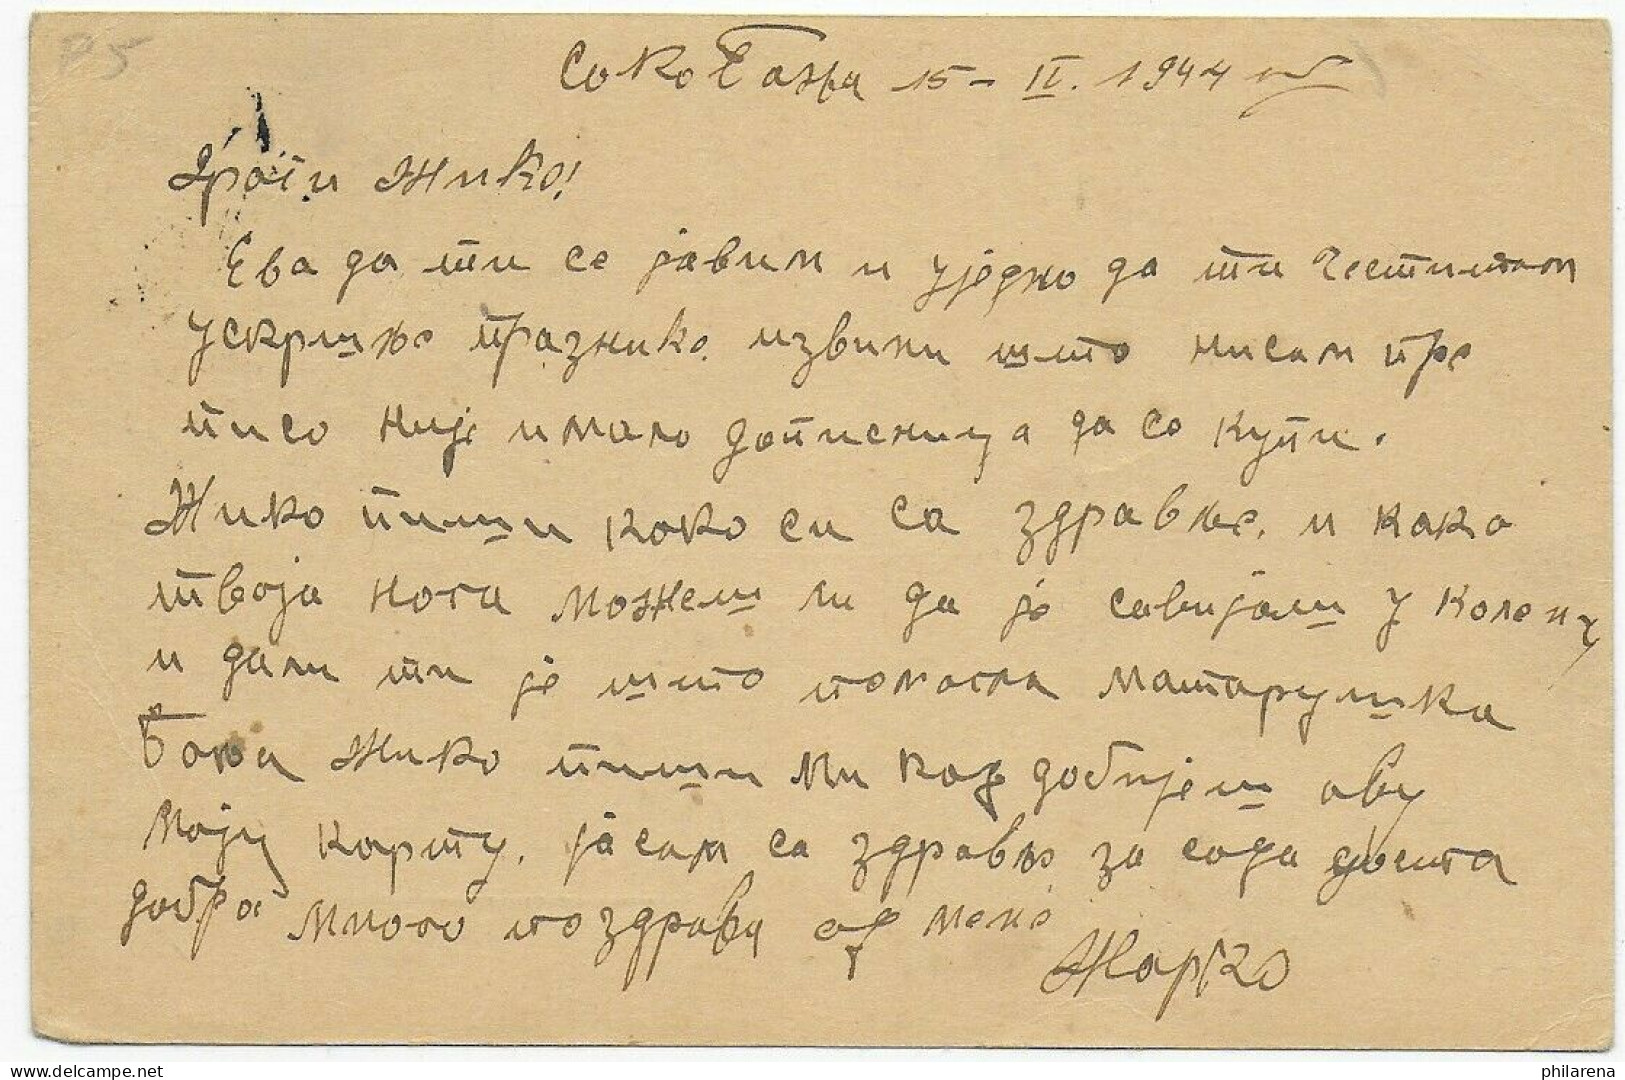 P5
Сокобања 15 - II. 1944
Драги Жико!
Ева да ти се јавим и уједно да ти честитам
ускршње празнике. извини што нисам пре
писо није имало дописница да се купи.
Жико пиши како си са здравље. и како
твоја нога можеш ли да је савијаш у колену
и дали ти је што помогла Матарушка
Бања Жико пиши ми кад добијеш ову
моју карту. ја сам са здравље за сада доста
добро много поздрава од мене
Жарко
delcampe.net
philarena